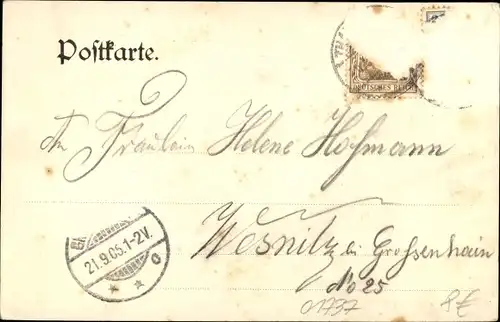 Postkarte.
DEUTSCHES REICH
An Fräulein Helene Hofmann
21.9.05.1-2V.
Wesnitz bei Grossenhain
No 25
01737
8€